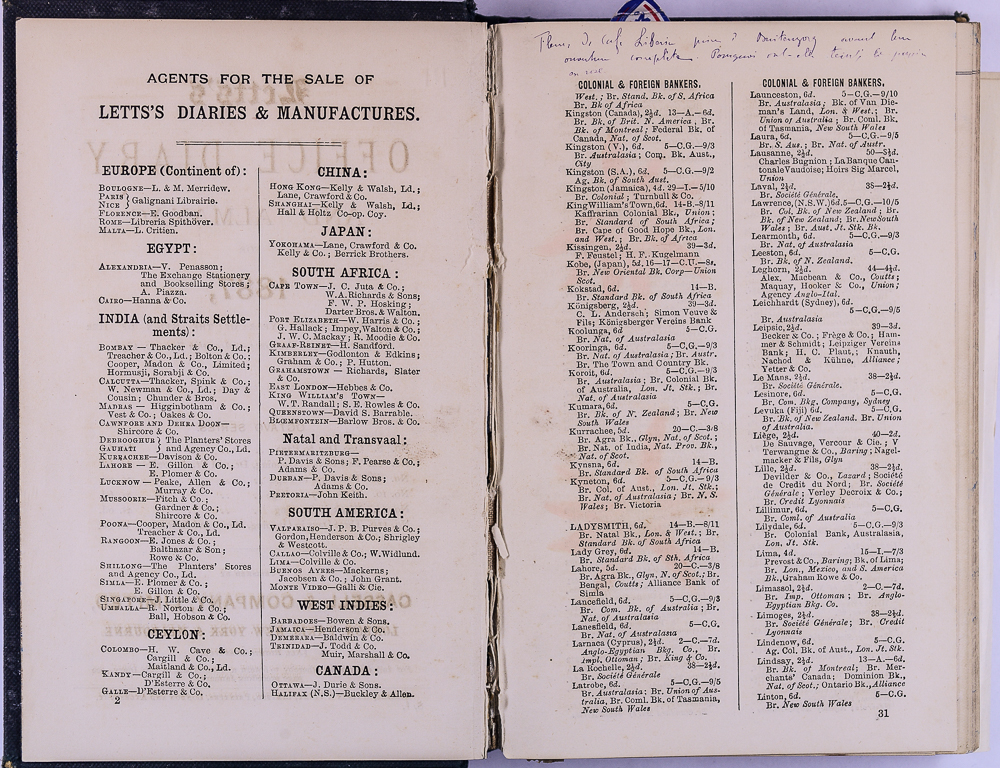 AGENTS FOR THE SALE OF
LETTS'S DIARIES & MANUFACTURES.
EUROPE (Continent of):
BOULOGNE—L. & M. Merridew.
PARIS } Galignani Librairie.
NICE
FLORENCE—E. Goodban.
ROME—Libreria Spithöver.
MALTA—L. Critien.
EGYPT:
ALEXANDRIA—V. Penasson;
The Exchange Stationery
and Bookselling Stores;
A. Piazza.
CAIRO—Hanna & Co.
INDIA (and Straits Settle-
ments):
BOMBAY — Thacker & Co., Ld.;
Treacher & Co., Ld.; Bolton & Co.;
Cooper, Madon & Co., Limited;
Hormusji, Sorabji & Co.
CALCUTTA—Thacker, Spink & Co.;
W. Newman & Co., Ld.; Day &
Cousin; Chunder & Bros.
MADRAS — Higginbotham & Co.;
Vest & Co.; Oakes & Co.
CAWNPORE AND DEHRA DOON—
Shircore & Co.
DEBROOGHUR } The Planters' Stores
GAUHATI } and Agency Co., Ld.
KURRACHEE—Davison & Co.
LAHORE — E. Gillon & Co.;
E. Plomer & Co.
LUCKNOW — Peake, Allen & Co.;
Murray & Co.
MUSSOORIE—Fitch & Co.;
Gardner & Co.;
Shircore & Co.
POONA—Cooper, Madon & Co., Ld.
Treacher & Co., Ld.
RANGOON—E. Jones & Co.;
Balthazar & Son;
Rowe & Co.
SHILLONG—The Planters' Stores
and Agency Co., Ld.
SIMLA—E. Plomer & Co.;
E. Gillon & Co.
SINGAPORE—J. Little & Co.
UMBALLA—R. Norton & Co.;
Ball, Hobson & Co.
CEYLON:
COLOMBO—H. W. Cave & Co.;
Cargill & Co.;
Maitland & Co., Ld.
KANDY—Cargill & Co.;
D'Esterre & Co.
GALLE—D'Esterre & Co.
2
CHINA:
HONG KONG—Kelly & Walsh, Ld.;
Lane, Crawford & Co.
SHANGHAI—Kelly & Walsh, Ld.;
Hall & Holtz Co-op. Coy.
JAPAN:
YOKOHAMA—Lane, Crawford & Co.
Kelly & Co.; Berrick Brothers.
SOUTH AFRICA:
CAPE TOWN—J. C. Juta & Co.;
W. A. Richards & Sons;
F. W. P. Hosking;
Darter Bros. & Walton.
PORT ELIZABETH—W. Harris & Co.;
G. Hallack; Impey, Walton & Co.;
J. W. C. Mackay; R. Moodie & Co.
GRAAF-REINET—H. Sandford.
KIMBERLEY—Godlonton & Edkins;
Graham & Co.; P. Hutton.
GRAHAMSTOWN — Richards, Slater
& Co.
EAST LONDON—Hebbes & Co.
KING WILLIAM'S TOWN—
W. T. Randall; S. E. Rowles & Co.
QUEENSTOWN—David S. Barrable.
BLOEMFONTEIN—Barlow Bros. & Co.
Natal and Transvaal:
PIETERMARITZBURG—
P. Davis & Sons; F. Pearse & Co.;
Adams & Co.
DURBAN—P. Davis & Sons;
Adams & Co.
PRETORIA—John Keith.
SOUTH AMERICA:
VALPARAISO—J. P. B. Purves & Co.;
Gordon, Henderson & Co.; Shrigley
& Westcott.
CALLAO—Colville & Co.; W. Widlund.
LIMA—Colville & Co.
BUENOS AYRES—Mackerns;
Jacobsen & Co.; John Grant.
MONTE VIDEO—Galli & Cie.
WEST INDIES:
BARBADOES—Bowen & Sons.
JAMAICA—Henderson & Co.
DEMERARA—Baldwin & Co.
TRINIDAD—J. Todd & Co.
Muir, Marshall & Co.
CANADA:
OTTAWA—J. Durie & Sons.
HALIFAX (N.S.)—Buckley & Allen.
COLONIAL & FOREIGN BANKERS,
West.; Br. Stand. Bk. of S. Africa
Br. Bk of Africa
Kingston (Canada), 2½d. 13—A.—6d.
Br. Bk. of Brit. N. America, Br.
Bk. of Montreal; Federal Bk. of
Canada, Nat. of Scot.
Kingston (V.), 6d. 5—C.G.—9/3
Br. Australasia; Com. Bk. Aust.,
City
Kingston (S.A.), 6d. 5—C.G.—9/2
Ag. Bk. of South Aust.
Kingston (Jamaica), 4d. 29—I.—5/10
Br. Colonial; Turnbull & Co.
King William's Town, 6d. 14-B.—8/11
Kaffrarian Colonial Bk., Union;
Br. Standard of South Africa;
Br. Cape of Good Hope Bk., Lon.
and West.; Br. Bk. of Africa
Kissingen, 2½d. 39—3d.
F. Feustel; H. F. Kugelmann
Kobe, (Japan), 5d. 16—17—C.U.—8s.
Br. New Oriental Bk. Corp—Union
Scot.
Kokstad, 6d. 14—B.
Br. Standard Bk. of South Africa
Königsberg, 2½d. 39—3d.
C. L. Andersch; Simon Veuve &
Fils; Königsberger Vereins Bank
Koolunga, 6d 5—C.G.
Br. Nat. of Australasia
Kooringa, 6d. 5—C.G.—9/3
Br. Nat. of Australasia; Br. Austr.
Br. The Town and Country Bk.
Koroit, 6d. 5—C.G.—9/3
Br. Australasia; Br. Colonial Bk.
of Australia, Lon. Jt. Stk.; Br.
Nat. of Australasia
Kumara, 6d. 5—C.G.
Br. Bk. of N. Zealand; Br. New
South Wales
Kurrachee, 5d. 20—C.—3/8
Br. Agra Bk., Glyn, Nat. of Scot.;
Br. Nat. of India, Nat. Prov. Bk.,
Nat. of Scot.
Kynsna, 6d. 14—B.
Br. Standard Bk. of South Africa
Kyneton, 6d. 5—C.G.—9/3
Br. Col. of Aust., Lon. Jt. Stk.;
Br. Nat. of Australasia; Br. N. S.
Wales; Br. Victoria
LADYSMITH, 6d. 14—B.—8/11
Br. Natal Bk., Lon. & West.; Br.
Standard Bk. of South Africa
Lady Grey, 6d. 14—B.
Br. Standard Bk. of Sth. Africa
Lahore, 5d. 20—C.—3/8
Br. Agra Bk., Glyn, N. of Scot.; Br.
Bengal, Coutts; Alliance Bank of
Simla
Lancefield, 6d. 5—C.G.—9/3
Br. Com. Bk. of Australia; Br.
Nat. of Australasia
Lanesfield, 6d. 5—C.G.
Br. Nat. of Australasia
Larnaca (Cyprus), 2½d. 2—C.—7d.
Anglo-Egyptian Bkg. Co., Br.
Impl. Ottoman; Br. King & Co.
La Rochelle, 2½d. 38—2½d.
Br. Société Générale
Latrobe, 6d. 5—C.G.—9/5
Br. Australasia; Br. Union of Aus-
tralia, Br. Coml. Bk. of Tasmania,
New South Wales
COLONIAL & FOREIGN BANKERS,
Launceston, 6d. 5—C.G.—9/10
Br. Australasia; Bk. of Van Die-
man's Land, Lon. & West.; Br.
Union of Australia; Br. Coml. Bk.
of Tasmania, New South Wales
Laura, 6d. 5—C.G.—9/5
Br. S. Aus.; Br. Nat. of Austr.
Lausanne, 2½d. 50—3½d.
Charles Bugnion; La Banque Can-
tonale Vaudoise; Hoirs Sig Marcel,
Union
Laval, 2½d. 38—2½d.
Br. Société Générale.
Lawrence, (N.S.W.) 6d. 5—C.G.—10/5
Br. Col. Bk. of New Zealand; Br.
Bk. of New Zealand; Br. New South
Wales; Br. Aust. Jt. Stk. Bk.
Learmonth, 6d. 5—C.G.—9/3
Br. Nat. of Australasia
Leeston, 6d. 5—C.G.
Br. Bk. of N. Zealand.
Leghorn, 2½d. 44—4½d.
Alex. Macbean & Co., Coutts;
Maquay, Hooker & Co., Union;
Agency Anglo-Ital.
Leichhardt (Sydney), 6d.
5—C.G.—9/5
Br. Australasia
Leipsic, 2½d. 39—3d.
Becker & Co.; Frège & Co.; Ham-
mer & Schmidt; Leipziger Vereins
Bank; H. C. Plaut,; Knauth,
Nachod & Kühne, Alliance;
Yetter & Co.
Le Mans, 2½d. 38—2½d.
Br. Société Générale.
Lesinore, 6d. 5—C.G.
Br. Com. Bkg. Company, Sydney
Levuka (Fiji) 6d. 5—C.G.
Br. Bk. of New Zealand. Br. Union
of Australia.
Liège, 2½d. 40—2d.
De Sauvage, Vercour & Cie.; V
Terwangne & Co., Baring; Nagel-
macker & Fils, Glyn
Lille, 2½d. 38—2½d.
Devilder & Co., Lazard; Société
de Credit du Nord; Br. Société
Générale; Verley Decroix & Co.;
Br. Credit Lyonnais
Lillimur, 6d. 5—C.G.
Br. Coml. of Australia
Lilydale, 6d. 5—C.G.—9/3
Br. Colonial Bank, Australasia,
Lon. Jt. Stk.
Lima, 4d. 15—I.—7/3
Prevost & Co., Baring; Bk. of Lima;
Br. Lon., Mexico, and S. America
Bk., Graham Rowe & Co.
Limassol, 2½d. 2—C.—7d.
Br. Imp. Ottoman; Br. Anglo-
Egyptian Bkg. Co.
Limoges, 2½d. 38—2½d.
Br. Société Générale; Br. Credit
Lyonnais
Lindenow, 6d. 5—C.G.
Ag. Col. Bk. of Aust., Lon. Jt. Stk.
Lindsay, 2½d. 13—A.—6d.
Br. Bk. of Montreal; Br. Mer-
chants' Canada; Dominion Bk.,
Nat. of Scot.; Ontario Bk., Alliance
Linton, 6d. 5—C.G.
Br. New South Wales
31